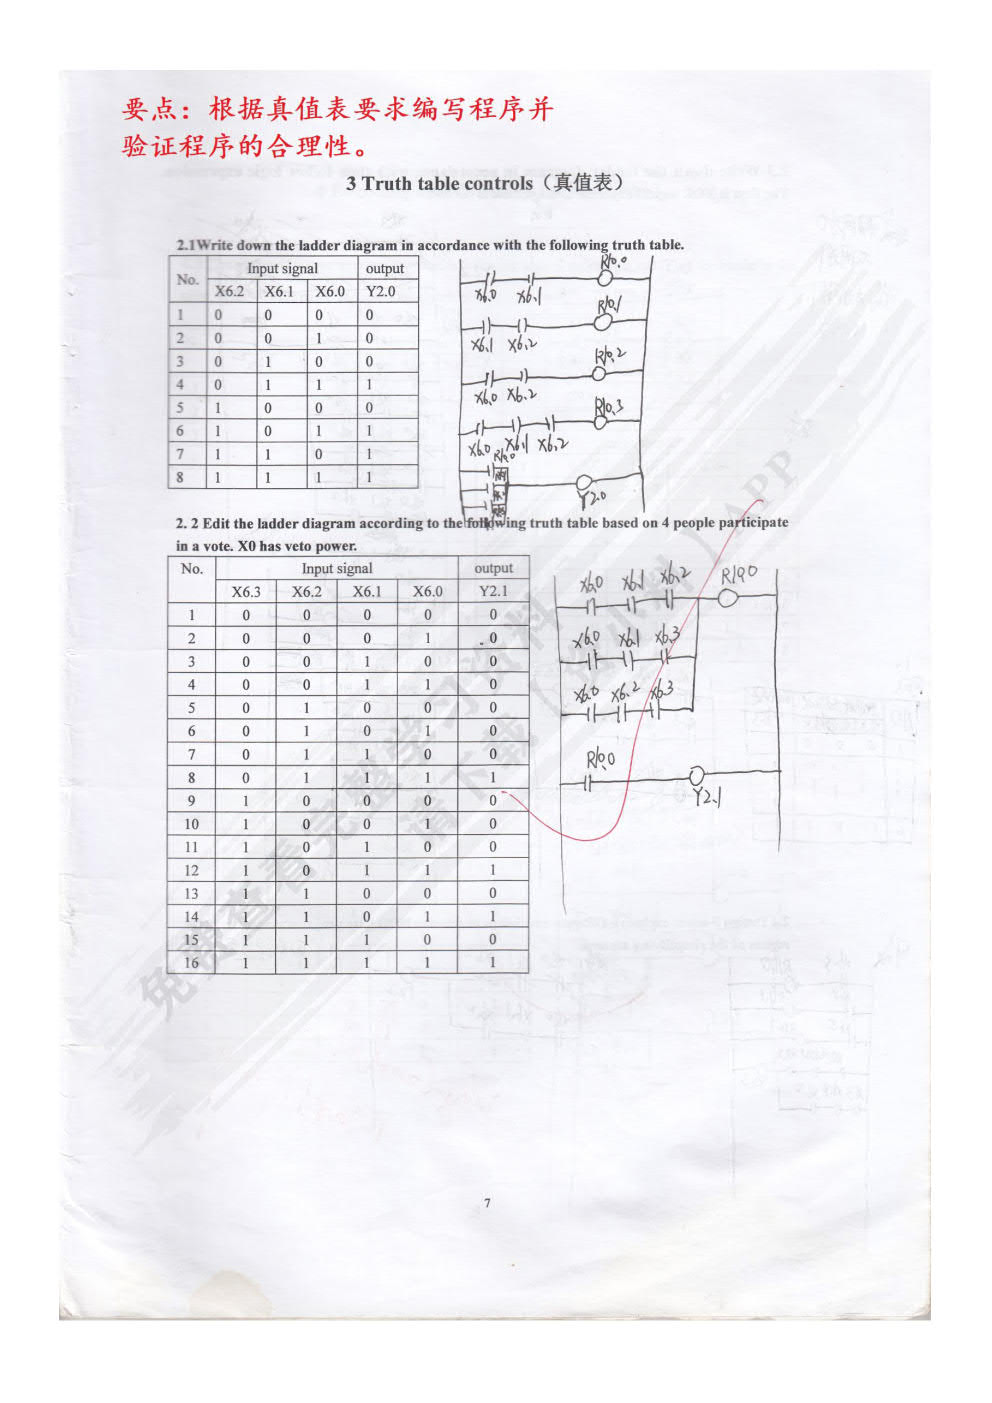 要点：根据真值表要求编写程序并
验证程序的合理性。
3 Truth table controls（真值表）
2.1Write down the ladder diagram in accordance with the following truth table.
No. Input signal output
X6.2 X6.1 X6.0 Y2.0
1 0 0 0 0
2 0 0 1 0
3 0 1 0 0
4 0 1 1 1
5 1 0 0 0
6 1 0 1 1
7 1 1 0 1
8 1 1 1 1
R10.0
X6.0 X6.1
R10.1
X6.1 X6.2
R10.2
X6.0 X6.2
R10.3
X6.0 X6.1 X6.2
R10.0
Y2.0
2. 2 Edit the ladder diagram according to the following truth table based on 4 people participate
in a vote. X0 has veto power.
No. Input signal output
X6.3 X6.2 X6.1 X6.0 Y2.1
1 0 0 0 0 0
2 0 0 0 1 0
3 0 0 1 0 0
4 0 0 1 1 0
5 0 1 0 0 0
6 0 1 0 1 0
7 0 1 1 0 0
8 0 1 1 1 1
9 1 0 0 0 0
10 1 0 0 1 0
11 1 0 1 0 0
12 1 0 1 1 1
13 1 1 0 0 0
14 1 1 0 1 1
15 1 1 1 0 0
16 1 1 1 1 1
X6.0 X6.1 X6.2 R10.0
X6.0 X6.1 X6.3
X6.0 X6.2 X6.3
R10.0
Y2.1
免费查看完整学习资料
请下载
APP
7